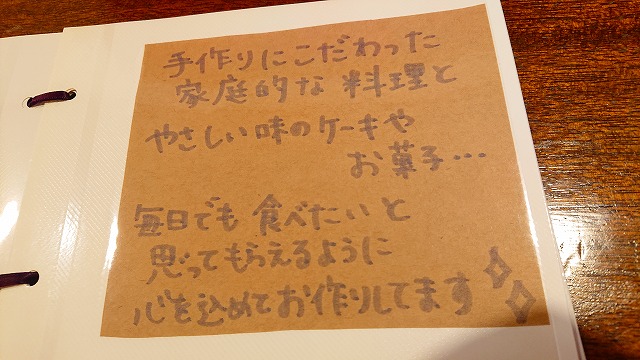 手作りにこだわった
家庭的な料理と
やさしい味のケーキや
お菓子…
毎日でも食べたいと
思ってもらえるように
心を込めてお作りしてます